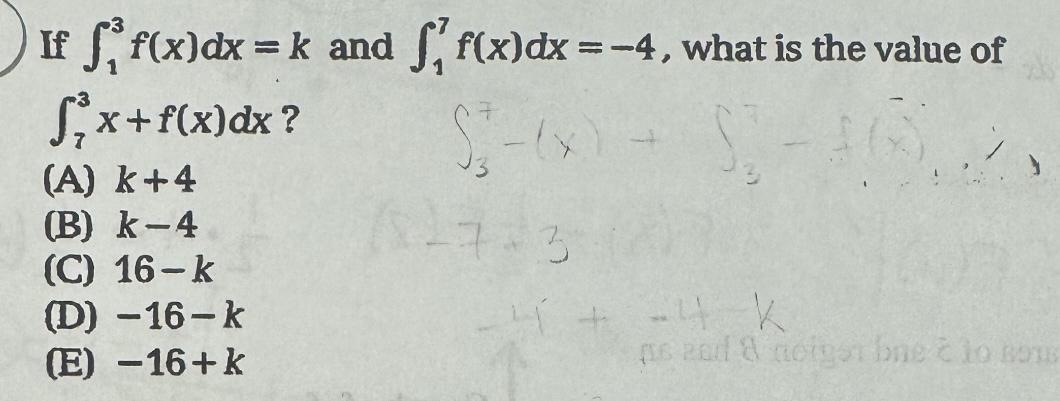 If ∫₁³ f(x)dx = k and ∫₁⁷ f(x)dx = −4, what is the value of
∫₇³ x + f(x)dx ?
∫₃⁷ -(x) + ∫₃⁷ - f(x)
(A) k + 4
(B) k − 4
-7 + 3
(C) 16 − k
(D) −16 − k
-4 + -4 - k
(E) −16 + k